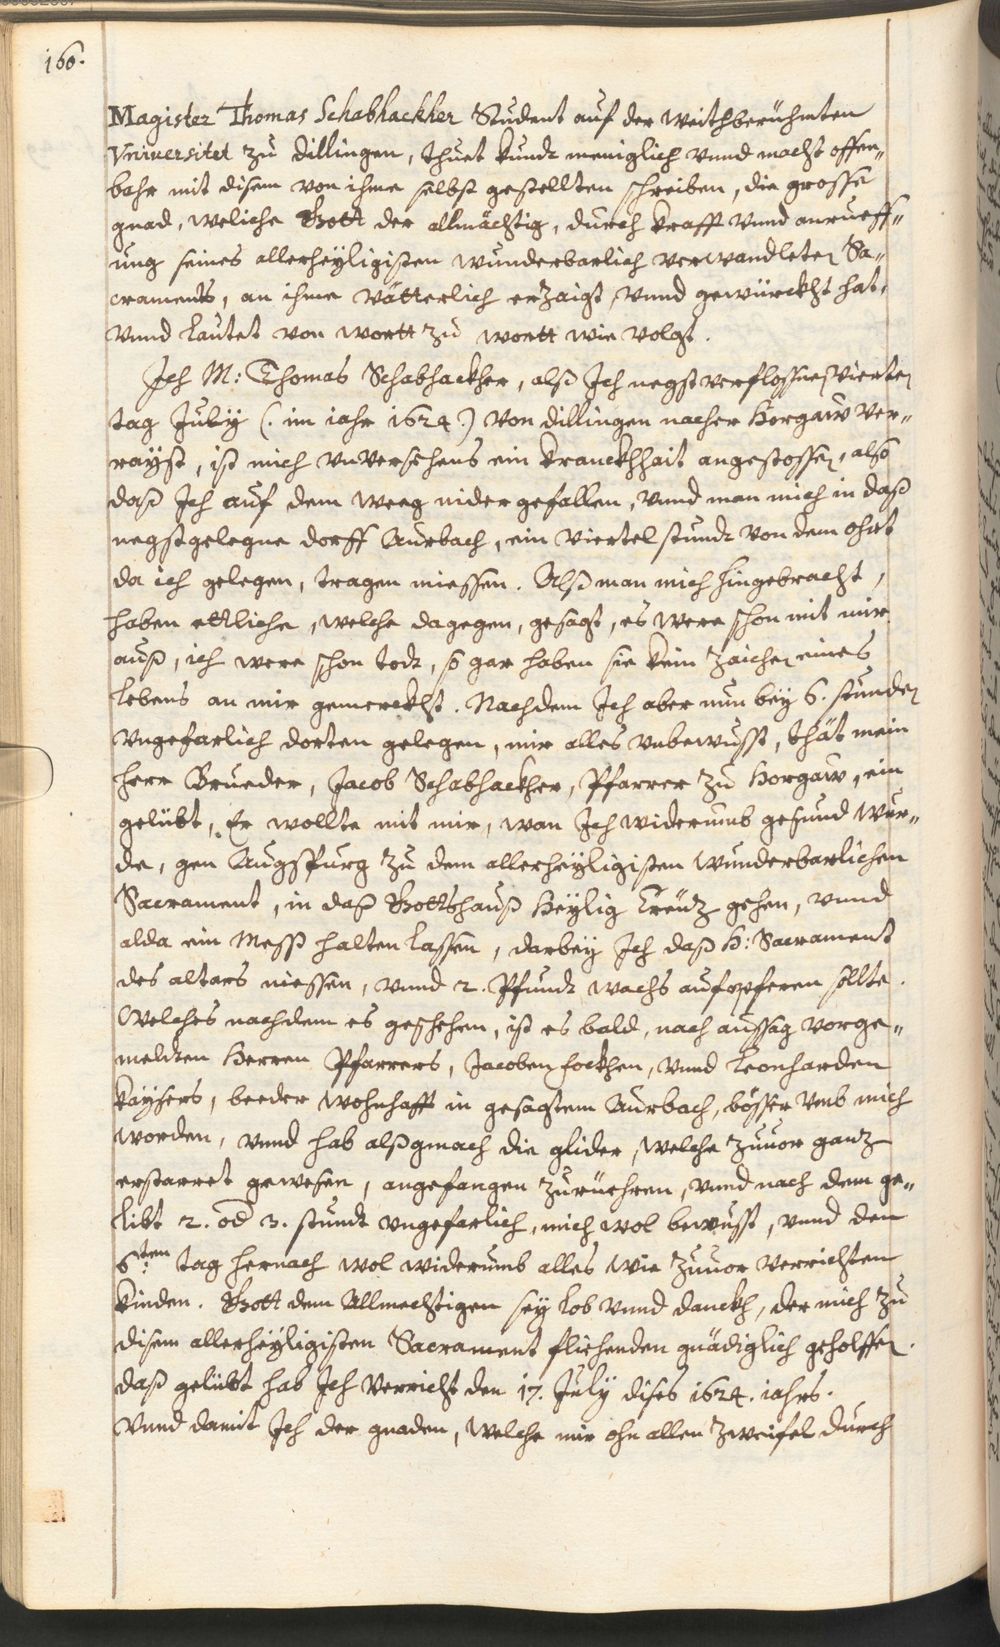 160.
Magister Thomas Schabhackher Student auf der weithberüehmten
Vniversitet zu Dillingen, thuet kundt meniglich vnnd macht offen„
bahr mit disem von ihme selbst gestellten schreiben, die grosse
gnad, weliche Gott der allmächtig, durch krafft vnnd anrueff„
ung seines allerheyligisten wunderbarlich verwandleten Sa„
craments, an ihme vätterlich erzaigt, vnnd gewürckht hat,
vnnd lautet von wortt zu wortt wie volgt.
Ich M: Thomas Schabhackher, alß Ich negst verflossnes vierten
tag July (. im iahr 1624 .) von Dillingen nacher Horgaw ver„
raÿst, ist mich vnversehens ein kranckhhait angestossen, also
daß Ich auf dem weeg nider gefallen, vnnd man mich in daß
negstgelegne dorff Aurbach, ein viertel stundt von dem ohrt
da ich gelegen, tragen miessen. Alß man mich hingebracht,
haben ettliche, welche dagegen, gesagt, es were schon mit mir
auß, ich were schon todt, so gar haben sie kein zaichen eines
lebens an mir gemerckht. Nachdem Ich aber nun beÿ 6. stunden
vngefarlich dorten gelegen, mir alles vnbewusst, thät mein
herr Brueder, Jacob Schabhackher, Pfarrer zu Horgaw, ein
gelübt, Er wollte mit mir, wan Ich widerumb gesund wur„
de, gen Augspurg zu dem allerheÿligisten wunderbarlichen
Sacrament, in daß Gottshauß Heÿlig Creütz gehen, vnnd
alda ein Mess halten lassen, darbeÿ Ich daß H: Sacrament
des altars niessen, vnnd 2. Pfundt wachs aufopferen sollte.
Welches nachdem es geschehen, ist es bald, nach aussag vorge„
melten Herren Pfarrers, Jacoben Fockhen, vnnd Leonharden
Kaÿsers, beeder wohnhafft in gesagtem Aurbach, bösser vmb mich
worden, vnnd hab alßgmach die glider, welche zuuor gantz
erstarret gewesen, angefangen zurüehren, vnnd nach dem ge„
libt 2. od 3. stundt vngefarlich, mich wol bewusst, vnnd den
6:ten tag hernach wol widerumb alles wie zuuor verrichten
kinden. Gott dem Allmechtigen seÿ lob vnnd danckh, der mich zu
disem allerheÿligisten Sacrament fliehenden gnädiglich geholffen.
daß gelübt hab Ich verricht den 17. Julÿ dises 1624. iahrs.
Vnnd damit Ich der gnaden, welche mir ohn allen zweifel durch